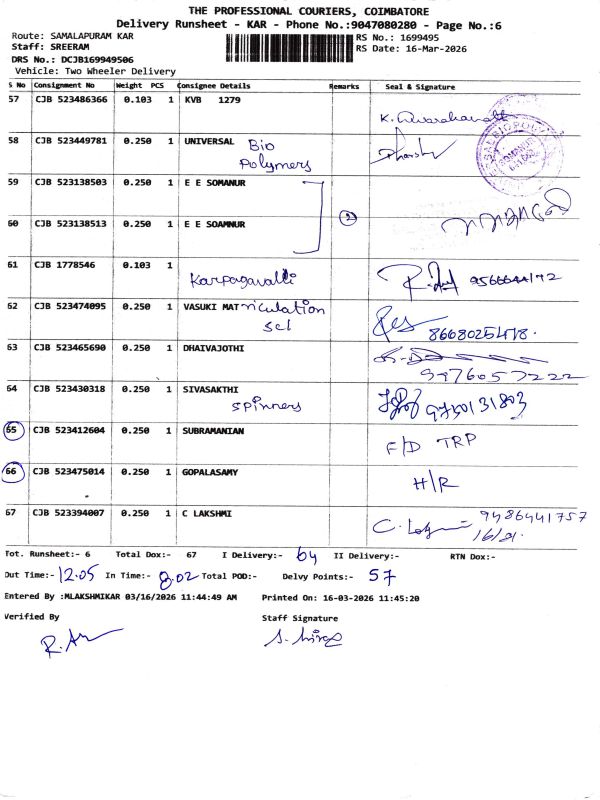 THE PROFESSIONAL COURIERS, COIMBATORE
Delivery Runsheet - KAR - Phone No.:9047080280 - Page No.:6
Route: SAMALAPURAM KAR
RS No.: 1699495
Staff: SREERAM
RS Date: 16-Mar-2026
DRS No.: DCJB169949506
Vehicle: Two Wheeler Delivery
S No Consignment No Weight PCS Consignee Details Remarks Seal & Signature
57 CJB 523486366 0.103 1 KVB 1279
58 CJB 523449781 0.250 1 UNIVERSAL Bio
Polymers
59 CJB 523138503 0.250 1 E E SOMANUR
2
60 CJB 523138513 0.250 1 E E SOAMNUR
61 CJB 1778546 0.103 1
Karpagavalli
9566644192
62 CJB 523474095 0.250 1 VASUKI MATriculation
Scl
8668025478.
63 CJB 523465690 0.250 1 DHAIVAJOTHI
9976057222
64 CJB 523430318 0.250 1 SIVASAKTHI
Spinners
9750131803
65 CJB 523412604 0.250 1 SUBRAMANIAN
F/D TRP
66 CJB 523475014 0.250 1 GOPALASAMY
H/R
67 CJB 523394007 0.250 1 C LAKSHMI
9486441757
Tot. Runsheet:- 6 Total Dox:- 67 I Delivery:- 64 II Delivery:- RTN Dox:-
Out Time:- 12.05 In Time:- 8.02 Total POD:- Delvy Points:- 57
Entered By :MLAKSHMIKAR 03/16/2026 11:44:49 AM Printed On: 16-03-2026 11:45:20
Verified By Staff Signature